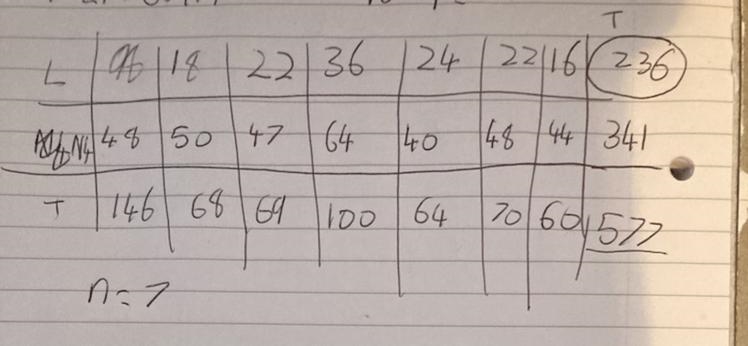 T
L 98 18 22 36 24 22 16 236
48 50 47 64 40 48 44 341
T 146 68 69 100 64 70 60 577
n=7